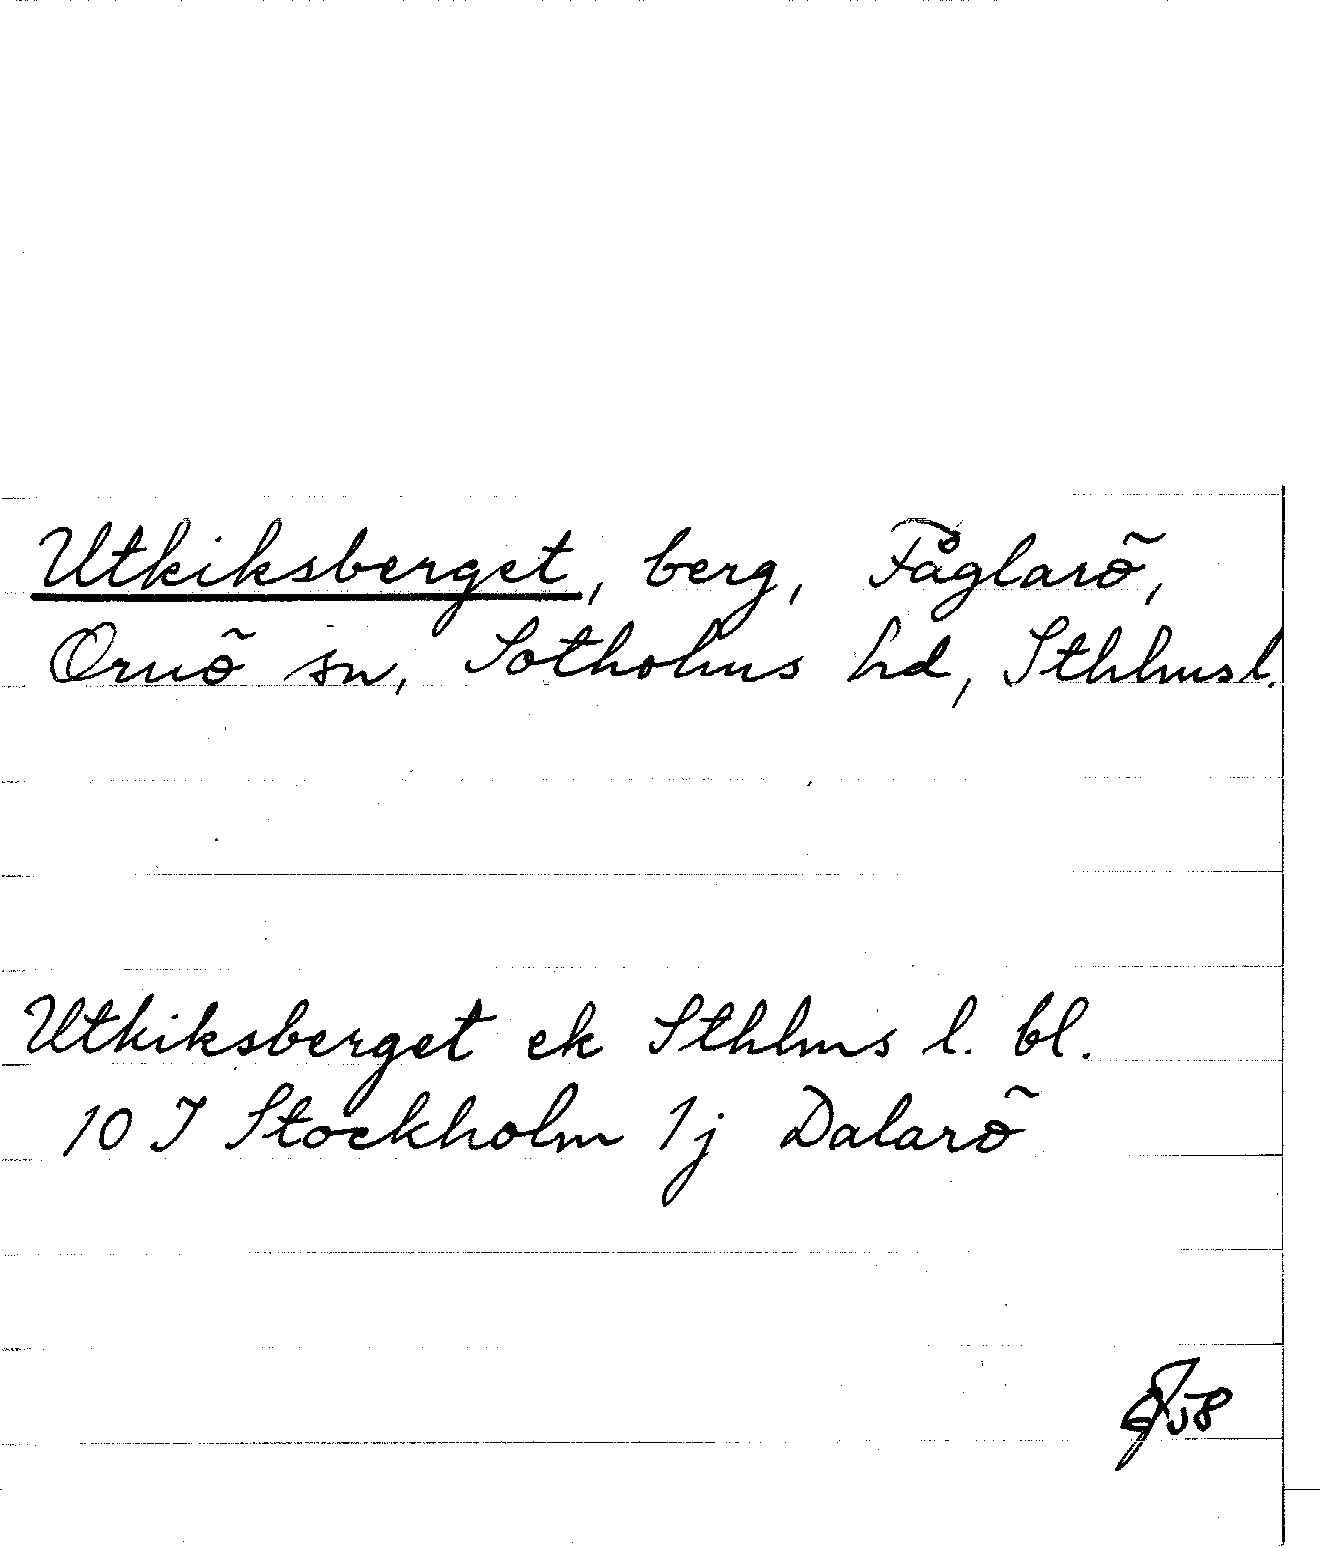 Utkiksberget, berg, Fåglarö,
Ornö sn, Sotholms hd, Sthlmsl.
Utkiksberget ek Sthlms l. bl.
10 I Stockholm 1j Dalarö
58